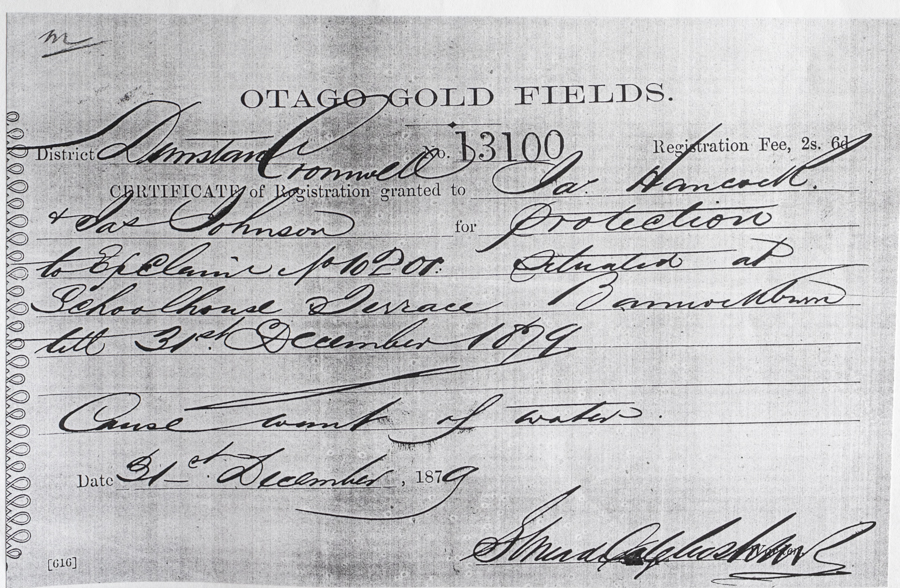 m
OTAGO GOLD FIELDS.
District Dunstan Cromwell No. 13100 Registration Fee, 2s. 6d
CERTIFICATE of Registration granted to Ja: Hancock.
& Jas Johnson for protection
to Ex Claim situated at
Schoolhouse Terrace Bannockburn
till 31st December 1879
Cause want of water.
Date 31st December, 1879
Warden
[616]